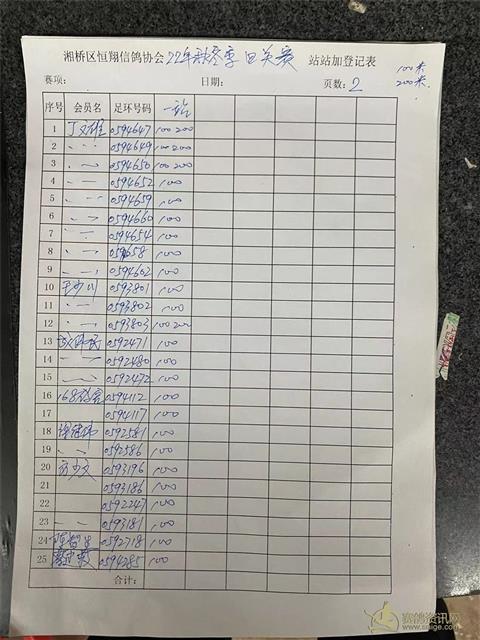 湘桥区恒翔信鸽协会 22年秋冬季四关赛 站站加登记表
100米
200米
赛项: 日期: 页数: 2
序号 会员名 足环号码 一站
1 0594647 100 200
2 〃 0594649 100 200
3 〃 0594650 100 200
4 〃 0594652 100
5 〃 0594659 100
6 〃 0594660 100
7 〃 0594654 100
8 〃 059658 100
9 〃 0594602 100
10 0593801 100
11 〃 0593802 100
12 〃 0593803 100 200
13 0592471 100
14 〃 0592480 100
15 〃 0592472 100
16 168 0594112 100
17 0594117 100
18 0592581 100
19 〃 0592586 100
20 方少文 0593196 100
21 0593186 100
22 0592247 100
23 〃 0593181 100
24 0592718 100
25 0594285 100
合计:
赛鸽资讯网
www.saige.com